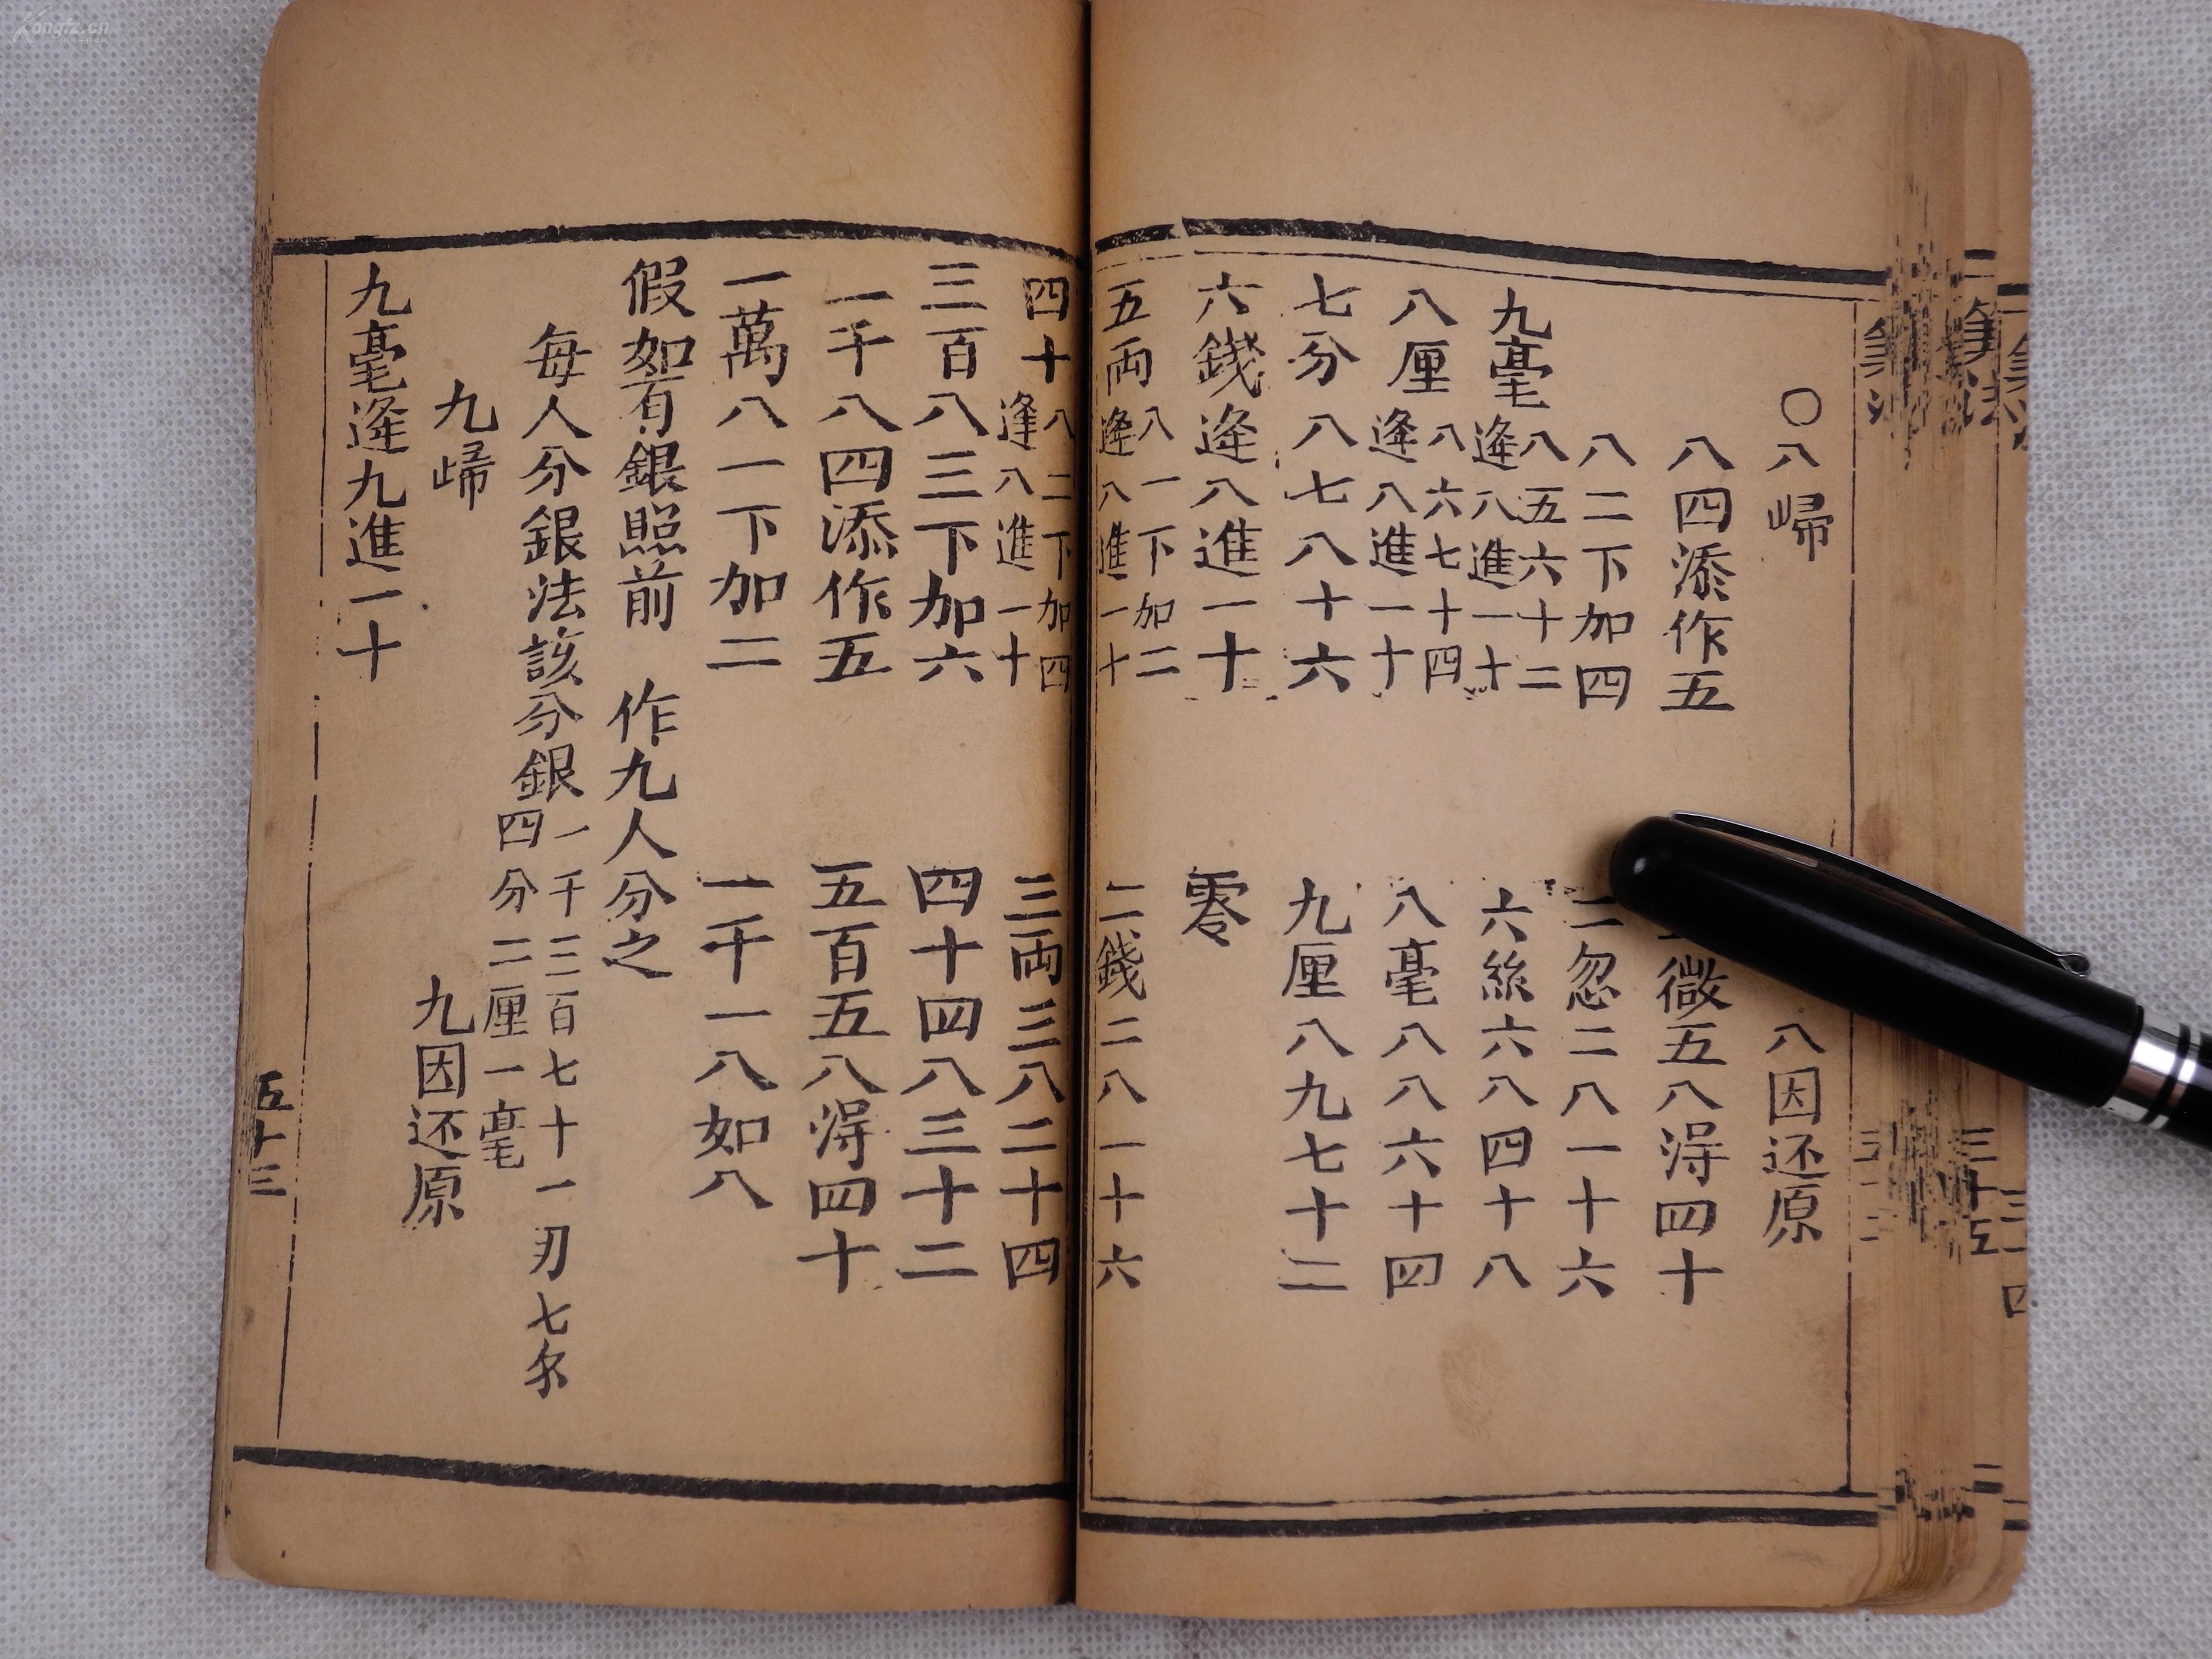 〇八歸
八因还原
八四添作五
微五八得四十
八二下加四
二忽二八一十六
九毫
八五六十二
逢八進一十
六絲六八四十八
八厘
八六七十四
逢八進一十
八毫八八六十四
七分八七八十六
九厘八九七十二
六錢逢八進一十
零
五両
八一下加二
逢八進一十
二錢二八一十六
四十
八二下加四
逢八進一十
三両三八二十四
三百八三下加六
四十四八三十二
一千八四添作五
五百五八得四十
一萬八一下加二
一千一八如八
假如有銀照前 作九人分之
每人分銀法該分銀
一千三百七十一刃七尓
四分二厘一毫
九歸
九因还原
九毫逢九進一十
五十三
Kongfz.cn